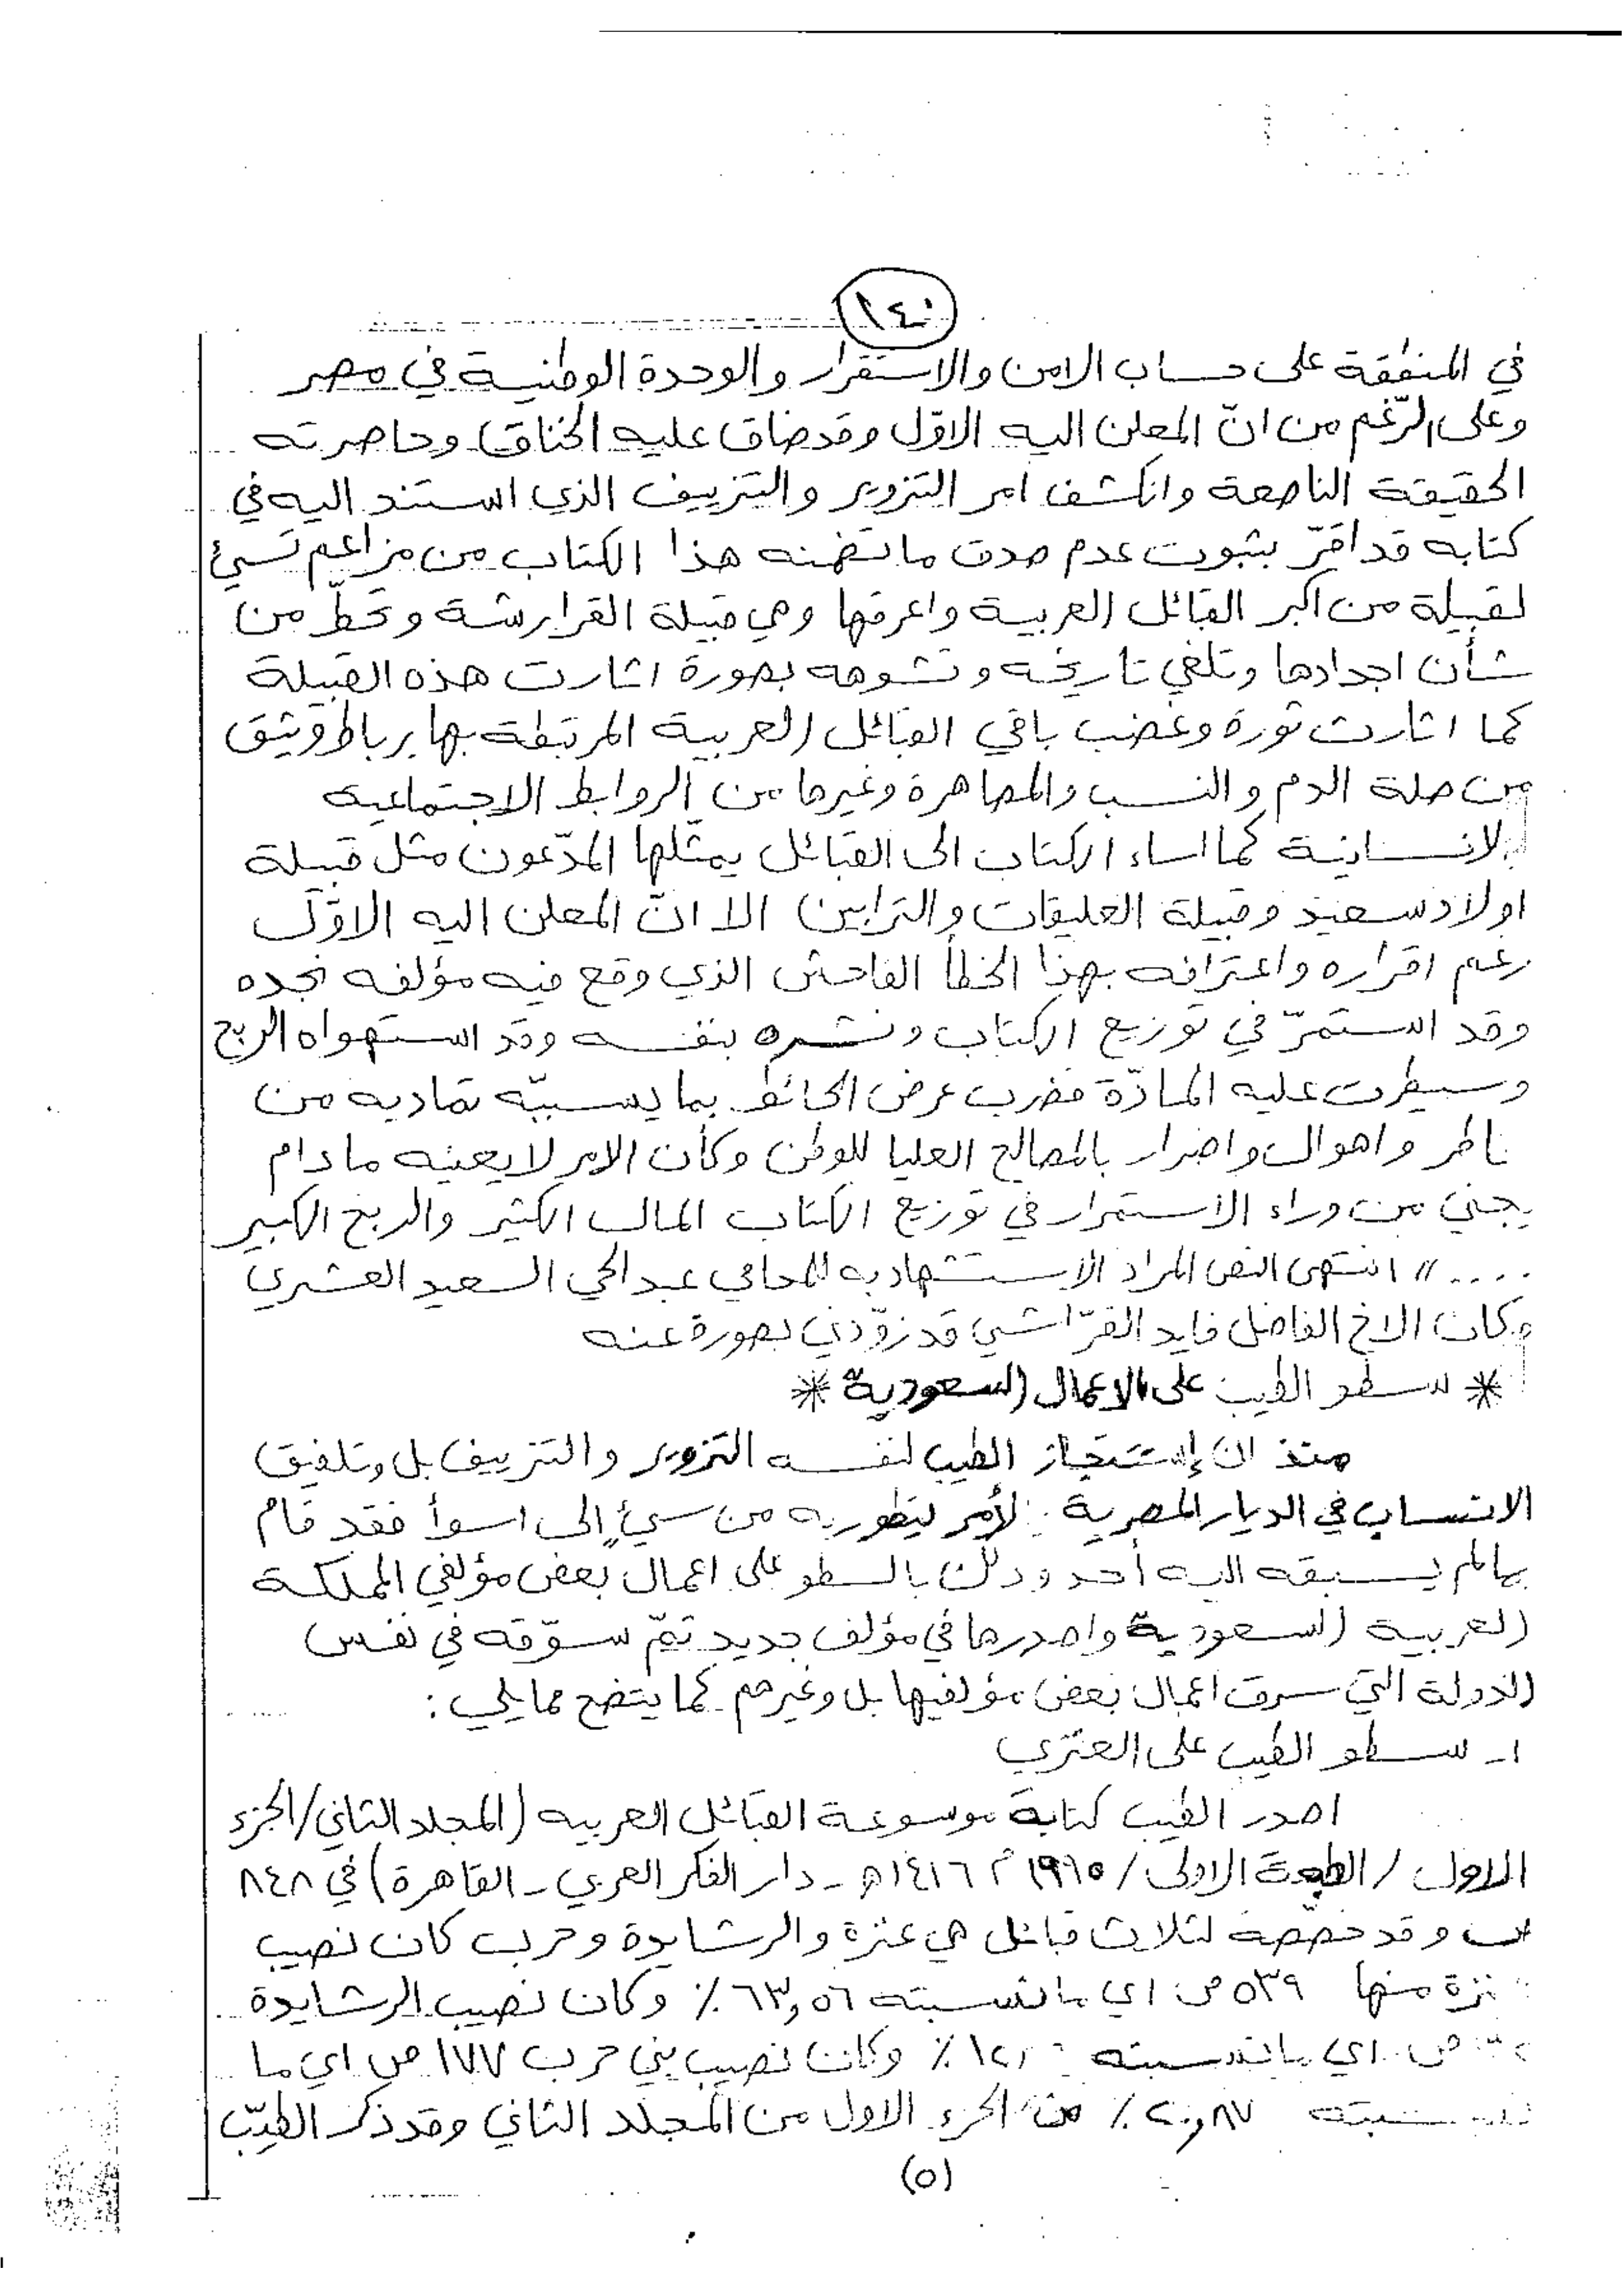 ١٤٠
في المنطقة على حساب الامن والاستقرار والوحدة الوطنية في مصر
وعلى الرّغم من انّ المعلن اليه الاوّل وقد ضاق عليه الخناق وحاصرته
الحقيقة الناصعة وانكشف امر التزوير والتزييف الذي استند اليه في
كتابه قد اقرّ بثبوت عدم صدق ما تضمنه هذا الكتاب من مزاعم تسيئ
لقبيلة من اكبر القبائل العربية واعرقها وهي قبيلة القرارشة وتحطّ من
شأن اجدادها وتلغي تاريخه وتشوهه بصورة اثارت هذه القبيلة
كما اثارت ثورة وغضب باقي القبائل العربية المرتبطة بها برباط وثيق
من صلة الدم والنسب والمصاهرة وغيرها من الروابط الاجتماعيه
الانسانية كما اساء الكتاب الى القبائل يمثلها المدّعون مثل قبيلة
اولاد سعيد وقبيلة العليقات والترابين الا انّ المعلن اليه الاوّل
رغم اقراره واعترافه بهذا الخطأ الفاحش الذي وقع فيه مؤلفه نجده
وقد استمرّ في توزيع الكتاب ونشره بنفسه وقد استهواه الربح
وسيطرت عليه المادّة فضرب عرض الحائط بما يسببّه تماديه من
واهوال واضرار بالمصالح العليا للوطن وكأن الامر لا يعنيه ما دام
يجني من وراء الاستمرار في توزيع الكتاب المال الكثير والربح الكبير
.... " انتهى النص المراد الاستشهاد به للمحامي عبد الحي السعيد العشري
وكان الاخ الفاضل فايد القرّاشي قد زوّدني بصورة عنه
* سطو الطيب على الاعمال السعودية *
منذ ان إستجاز الطيب لنفسه التزوير والتزييف بل وتلفيق
الانساب في الديار المصرية لأمر ليتطور به من سيئٍ إلى اسوأ فقد قام
بما لم يسبقه اليه أحد وذلك بالسطو على اعمال بعض مؤلفي المملكة
العربية السعودية واصدرها في مؤلف جديد تمّ سوّقه في نفس
الدولة التي سرق اعمال بعض مؤلفيها بل وغيرهم كما يتضح مما يلي :
١- سطو الطيب على العنزي
اصدر الطيب كتابة موسوعة القبائل العربيه (المجلد الثاني/الجزء
الاول / الطبعة الاولى / ١٩٩٥ م ١٤١٦ هـ - دار الفكر العربي - القاهرة) في ٨٤٨
وقد خصّصة لثلاث قبائل هي عنزة والرشايدة وحرب كان نصيب
عنزة منها ٥٣٩ ص اي ما نسبته ٦٣,٥٦ ٪ وكان نصيب الرشايدة
ص اي ما نسبته ٪ وكان نصيب بني حرب ١٧٧ ص اي ما
نسبته ٢٠,٨٧ ٪ من الجزء الاول من المجلد الثاني وقد ذكر الطيّب
(٥)